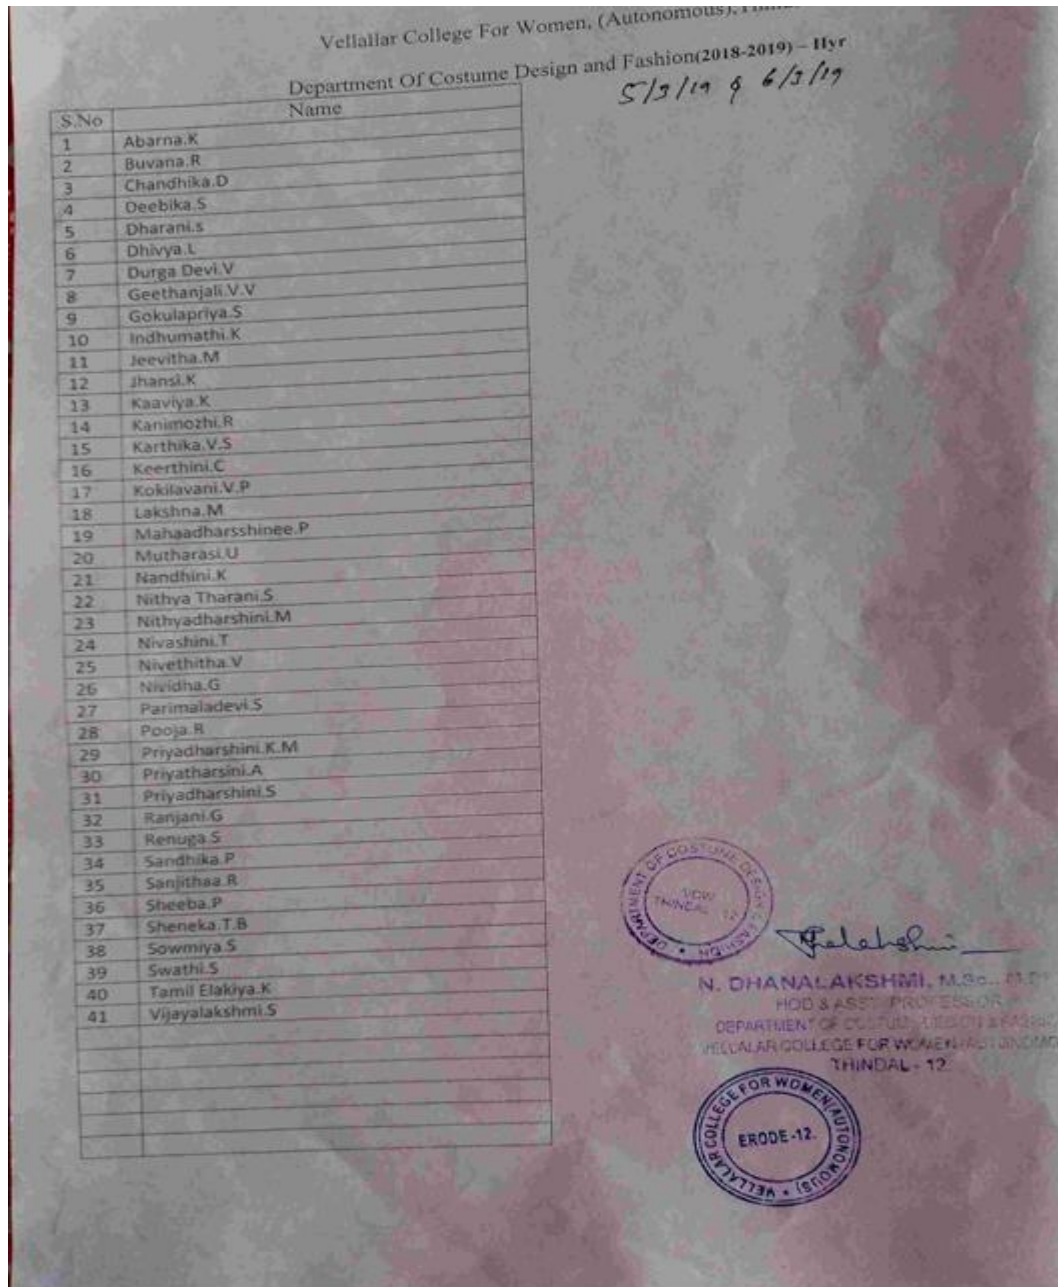 Vellallar College For Women, (Autonomous),
Department Of Costume Design and Fashion(2018-2019) – IIyr
5/3/19 & 6/3/19
S.No Name
1 Abarna.K
2 Buvana.R
3 Chandhika.D
4 Deebika.S
5 Dharani.s
6 Dhivya.L
7 Durga Devi.V
8 Geethanjali.V.V
9 Gokulapriya.S
10 Indhumathi.K
11 Jeevitha.M
12 Jhansi.K
13 Kaaviya.K
14 Kanimozhi.R
15 Karthika.V.S
16 Keerthini.C
17 Kokilavani.V.P
18 Lakshna.M
19 Mahaadharsshinee.P
20 Mutharasi.U
21 Nandhini.K
22 Nithya Tharani.S
23 Nithyadharshini.M
24 Nivashini.T
25 Nivethitha.V
26 Nividha.G
27 Parimaladevi.S
28 Pooja.R
29 Priyadharshini.K.M
30 Priyatharsini.A
31 Priyadharshini.S
32 Ranjani.G
33 Renuga.S
34 Sandhika.P
35 Sanjithaa.R
36 Sheeba.P
37 Sheneka.T.B
38 Sowmiya.S
39 Swathi.S
40 Tamil Elakiya.K
41 Vijayalakshmi.S
DEPARTMENT OF COSTUNE DESIGN & FASHION
VCW
THINDAL - 12
N. DHANALAKSHMI, M.Sc.,
HOD & ASST. PROFESSOR
DEPARTMENT OF
VELLALAR COLLEGE FOR WOMEN
THINDAL - 12.
VELLALAR COLLEGE FOR WOMEN(AUTONOMOUS)
ERODE -12.